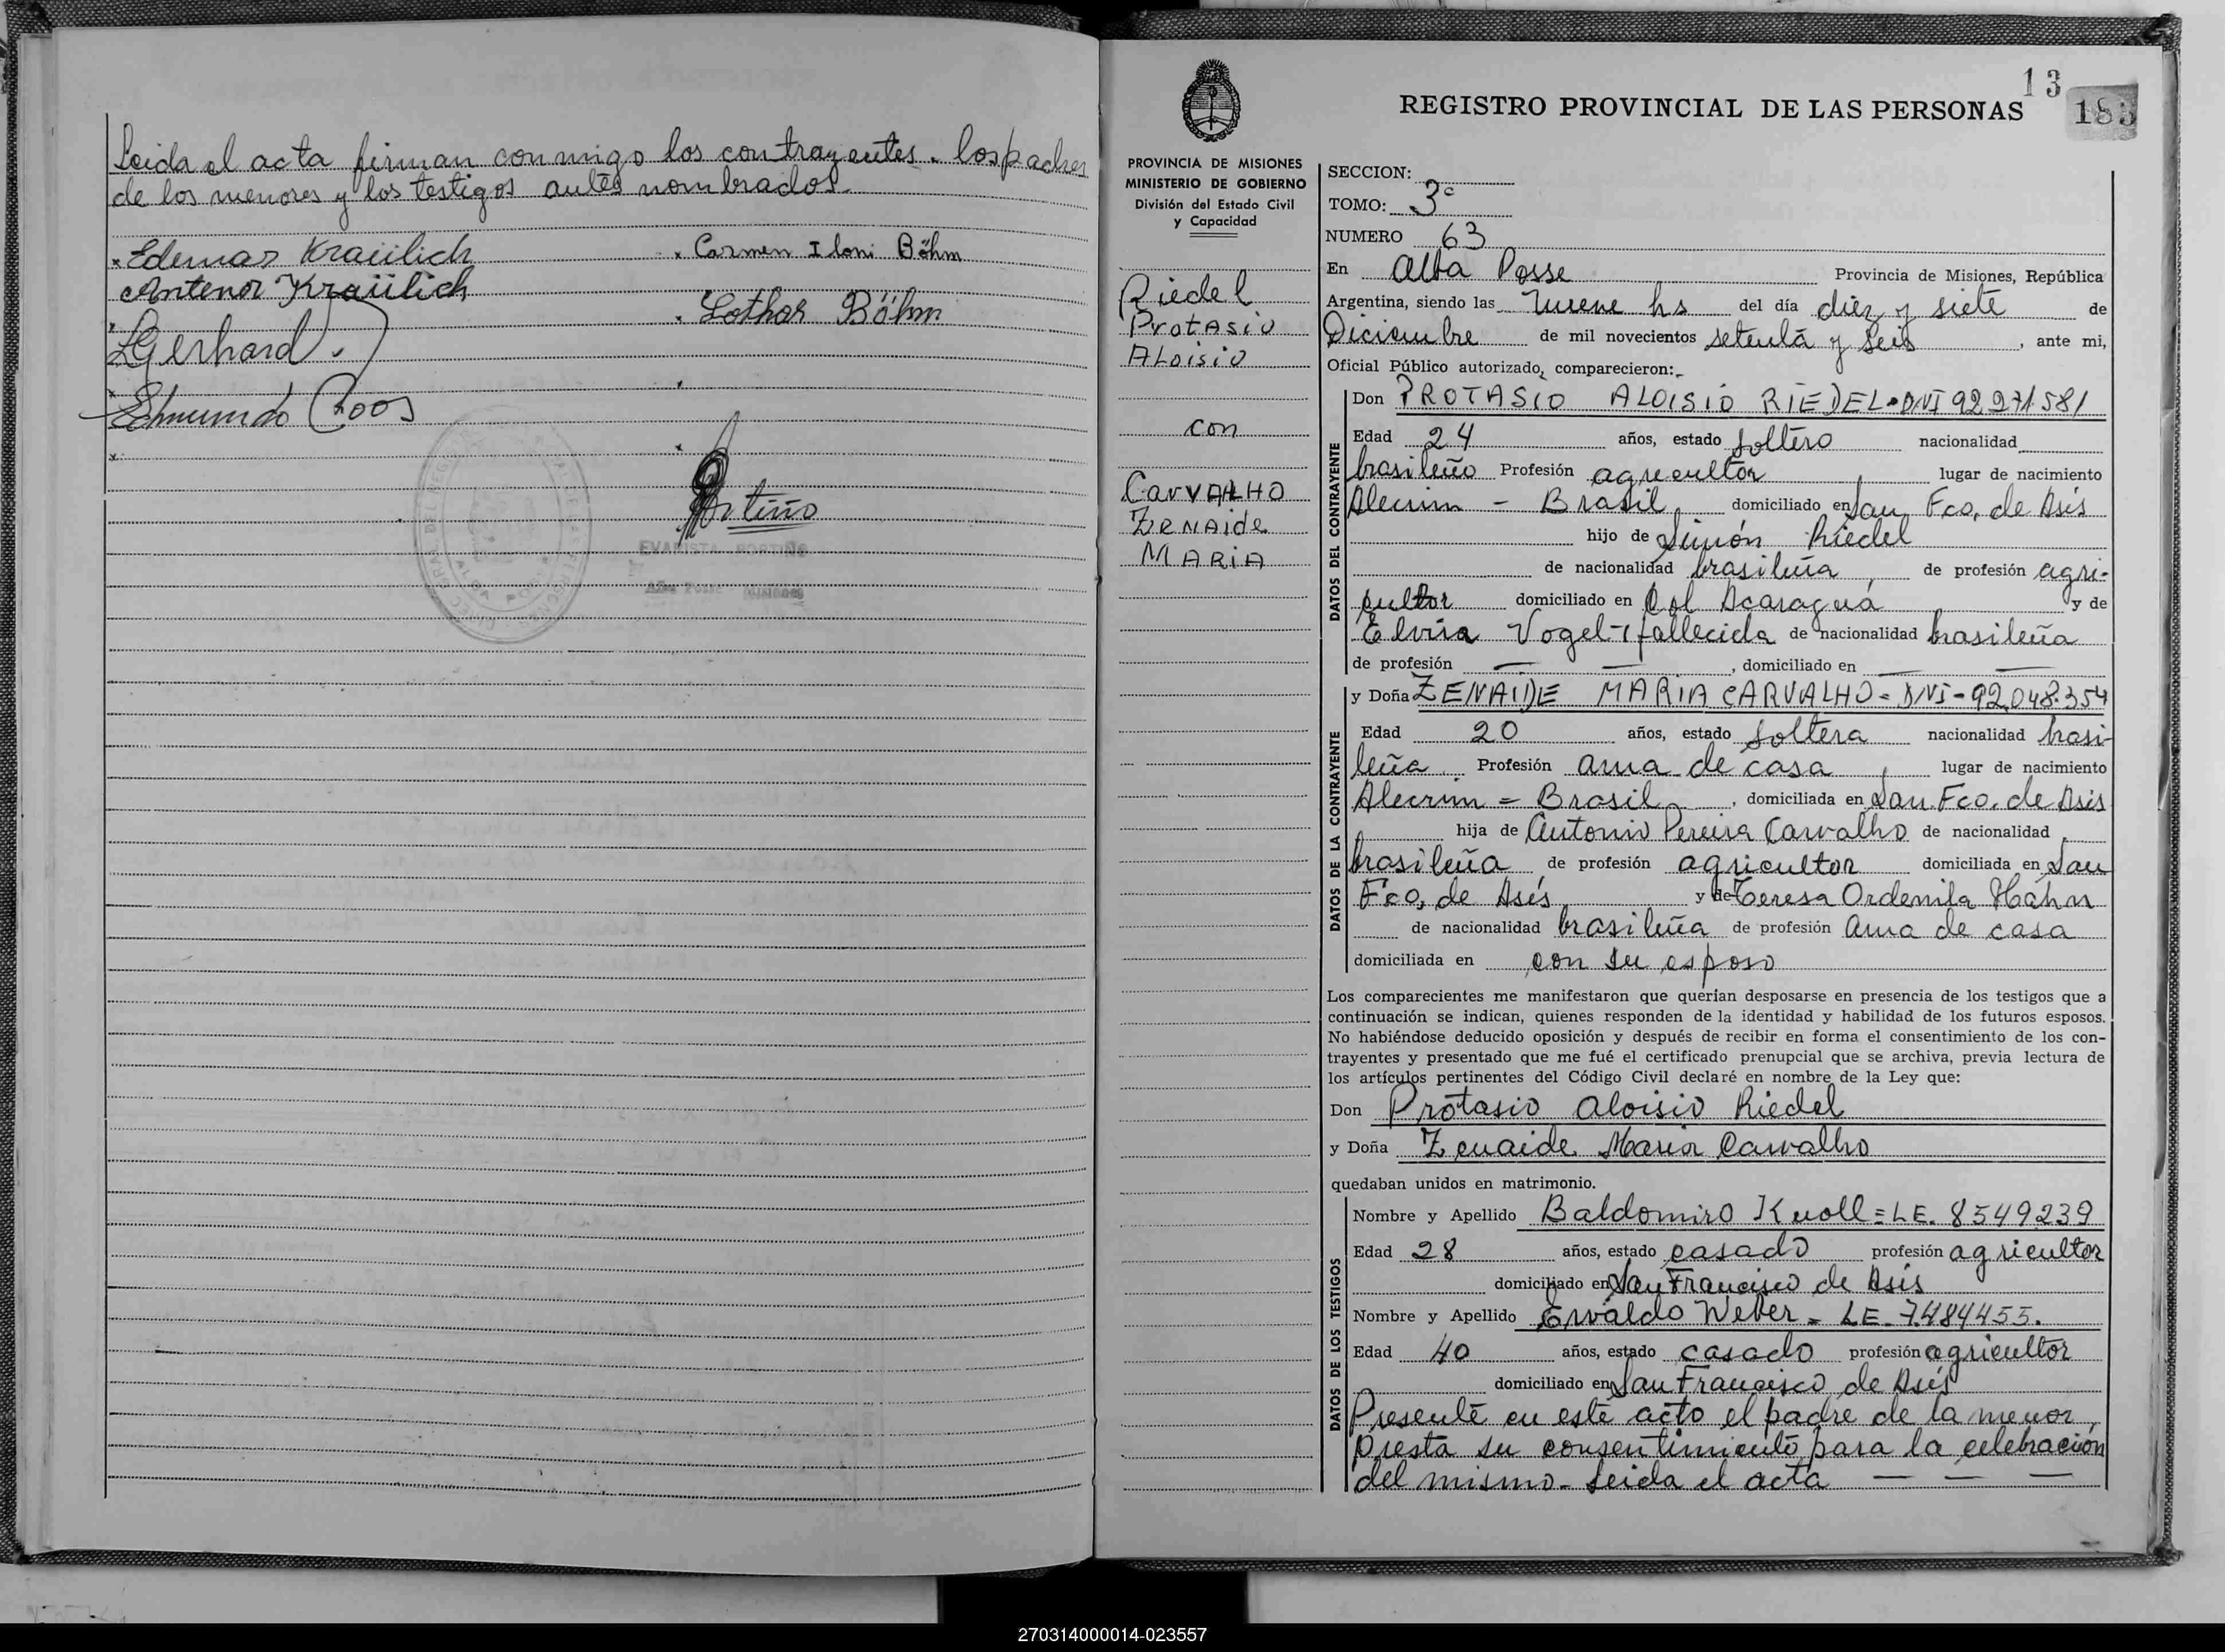 Leida el acta firman conmigo los contrayentes. los padres
de los menores y los testigos antes nombrados.
Edemar Kraülich
Carmen Iloni Böhm
Antenor Kraülich
Lothar Böhm
LGerhard.
Edmundo Roos
Portiño
EVARISTA PORTIÑO
Alba Posse Misiones
13
183
REGISTRO PROVINCIAL DE LAS PERSONAS
PROVINCIA DE MISIONES
MINISTERIO DE GOBIERNO
División del Estado Civil
y Capacidad
Riedel
Protasio
Aloisio
con
Carvalho
Zenaide
Maria
SECCION:
TOMO: 3º
NUMERO 63
En Alba Posse Provincia de Misiones, República
Argentina, siendo las nueve hs del día diez y siete de
Diciembre de mil novecientos setenta y seis, ante mi,
Oficial Público autorizado, comparecieron:-
DATOS DEL CONTRAYENTE
Don PROTASIO ALOISIO RIEDEL-DNI 92271581
Edad 24 años, estado soltero nacionalidad
brasileño Profesión agricultor lugar de nacimiento
Alecrim - Brasil, domiciliado en San Fco. de Asís
hijo de Simón Riedel
de nacionalidad brasileña, de profesión agri-
cultor domiciliado en Col Acaraguá y de
Elvira Vogel-fallecida de nacionalidad brasileña
de profesión — —, domiciliado en — —
DATOS DE LA CONTRAYENTE
y Doña ZENAIDE MARIA CARVALHO= DNI-92.048.354
Edad 20 años, estado soltera nacionalidad brasi-
leña Profesión ama de casa, lugar de nacimiento
Alecrim = Brasil, domiciliada en San Fco. de Asis
hija de Antonio Pereira Carvalho de nacionalidad
brasileña, de profesión agricultor domiciliada en San
Fco. de Asís y de Teresa Ordenila Hahn
de nacionalidad brasileña de profesión Ama de casa
domiciliada en con su esposo
Los comparecientes me manifestaron que querían desposarse en presencia de los testigos que a
continuación se indican, quienes responden de la identidad y habilidad de los futuros esposos.
No habiéndose deducido oposición y después de recibir en forma el consentimiento de los con-
trayentes y presentado que me fué el certificado prenupcial que se archiva, previa lectura de
los artículos pertinentes del Código Civil declaré en nombre de la Ley que:
Don Protasio Aloisio Riedel
y Doña Zenaide Maria Carvalho
quedaban unidos en matrimonio.
DATOS DE LOS TESTIGOS
Nombre y Apellido Baldomiro Knoll=LE. 8549239
Edad 28 años, estado casado profesión agricultor
domiciliado en San Francisco de Asís
Nombre y Apellido Erwaldo Weber = LE-7.484455.
Edad 40 años, estado casado profesión agricultor
domiciliado en San Francisco de Asís
Presente en este acto el padre de la menor,
presta su consentimiento para la celebración
del mismo- Leida el acta — — —
270314000014-023557